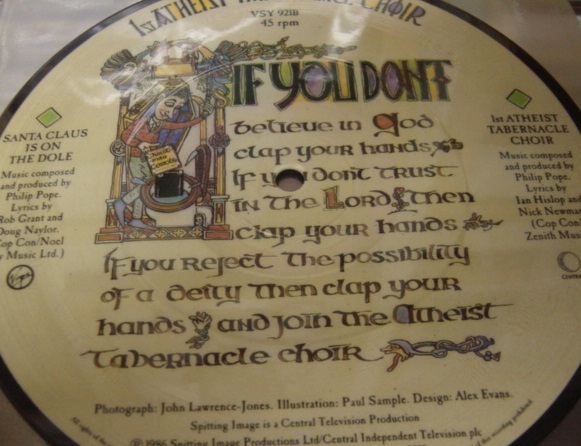 1st ATHEIST CHOIR
VSY 921B
45 rpm
SANTA CLAUS
IS ON
THE DOLE
Music composed
and produced by
Philip Pope.
Lyrics by
Rob Grant and
Doug Naylor.
Cop Con/Noel
Music Ltd.)
IF YOU DON'T
believe in God
clap your hands
If you don't trust
in the Lord then
clap your hands
If you reject the possibility
of a deity then clap your
hands and join the Atheist
Tabernacle choir
1st ATHEIST
TABERNACLE
CHOIR
Music composed
and produced by
Philip Pope.
Lyrics by
Ian Hislop and
Nick Newma
(Cop Con
Zenith Mus
Photograph: John Lawrence-Jones. Illustration: Paul Sample. Design: Alex Evans.
Spitting Image is a Central Television Production
℗ 1986 Spitting Image Productions Ltd/Central Independent Television plc